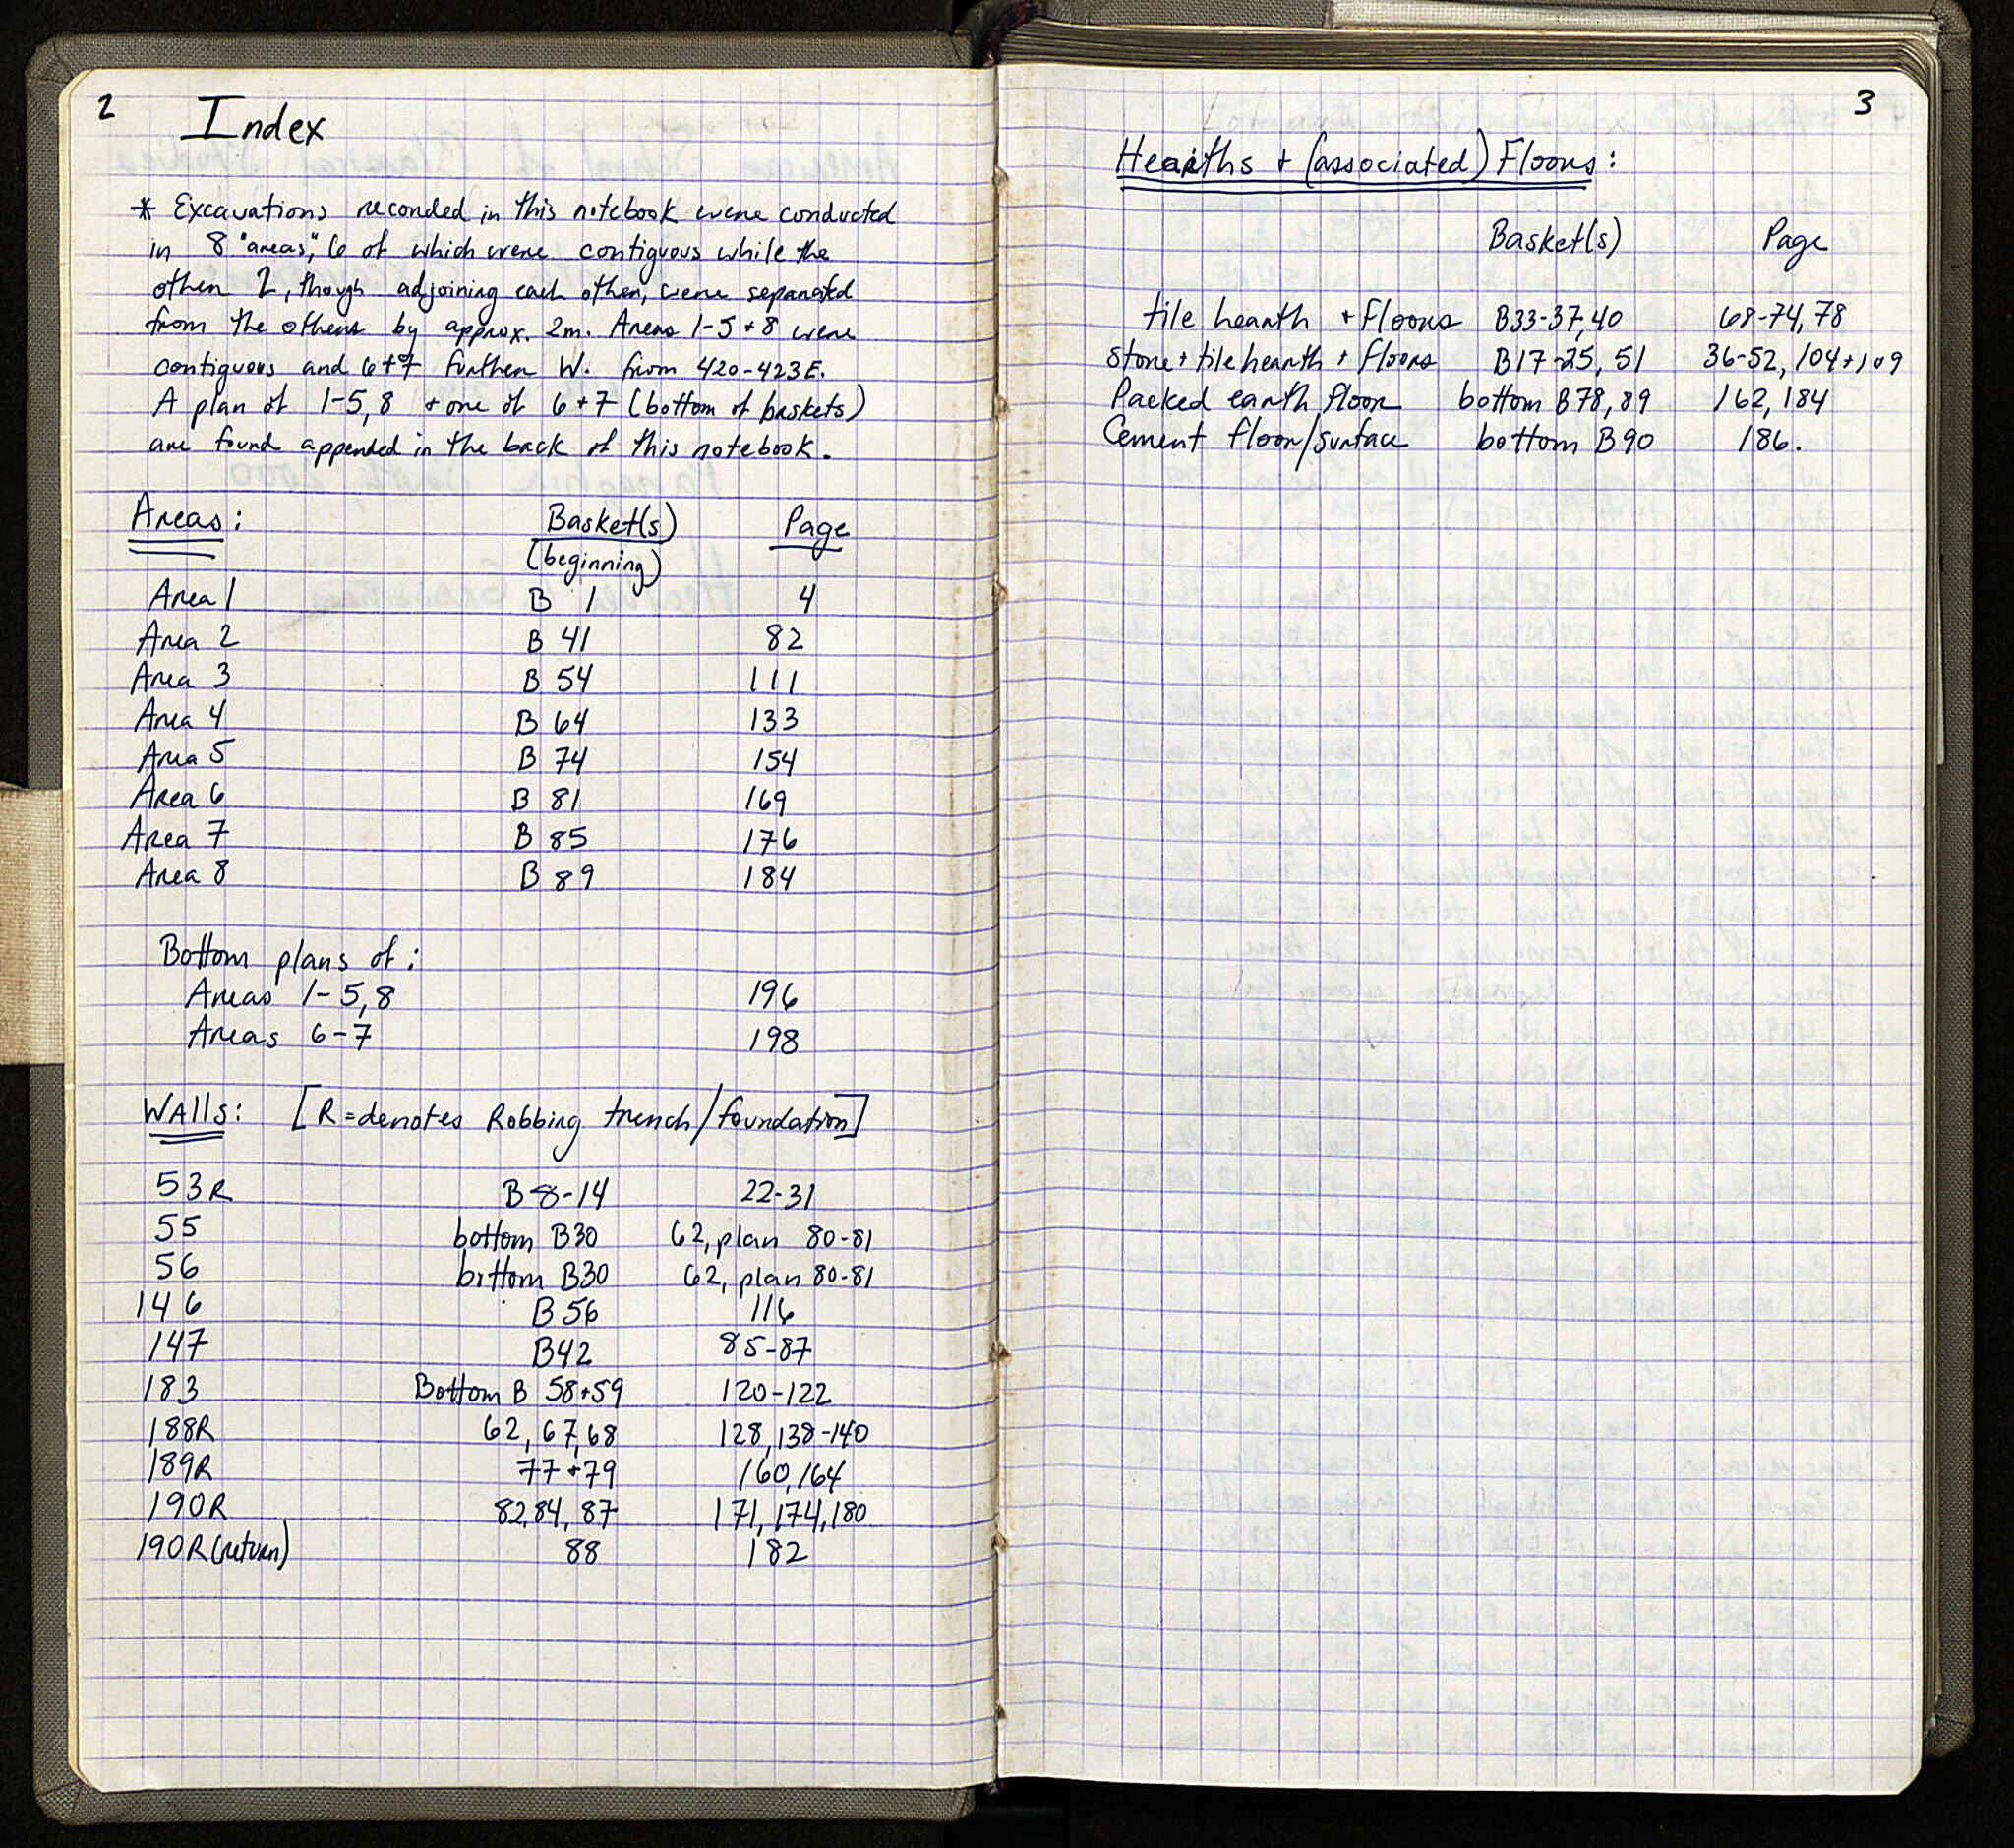 2
Index
* Excavations recorded in this notebook were conducted
in 8 "areas", 6 of which were contiguous while the
other 2, though adjoining each other, were separated
from the others by approx. 2m. Areas 1-5 + 8 were
contiguous and 6+7 further W. from 420-423E.
A plan of 1-5,8 + one of 6+7 (bottom of baskets)
are found appended in the back of this notebook.
Areas: Basket(s) Page
(beginning)
Area 1 B 1 4
Area 2 B 41 82
Area 3 B 54 111
Area 4 B 64 133
Area 5 B 74 154
Area 6 B 81 169
Area 7 B 85 176
Area 8 B 89 184
Bottom plans of:
Areas 1-5,8 196
Areas 6-7 198
WAlls: [R=denotes Robbing trench/foundation]
53R B8-14 22-31
55 bottom B30 62, plan 80-81
56 bottom B30 62, plan 80-81
146 B56 116
147 B42 85-87
183 Bottom B 58+59 120-122
188R 62, 67,68 128,138-140
189R 77+79 160,164
190R 82,84, 87 171, 174,180
190R(return) 88 182
3
Hearths + (associated) Floors:
Basket(s) Page
tile hearth + Floors B33-37,40 68-74, 78
stone + tile hearth + floors B17-25, 51 36-52, 104+109
Packed earth floor bottom B78, 89 162, 184
Cement floor/surface bottom B90 186.